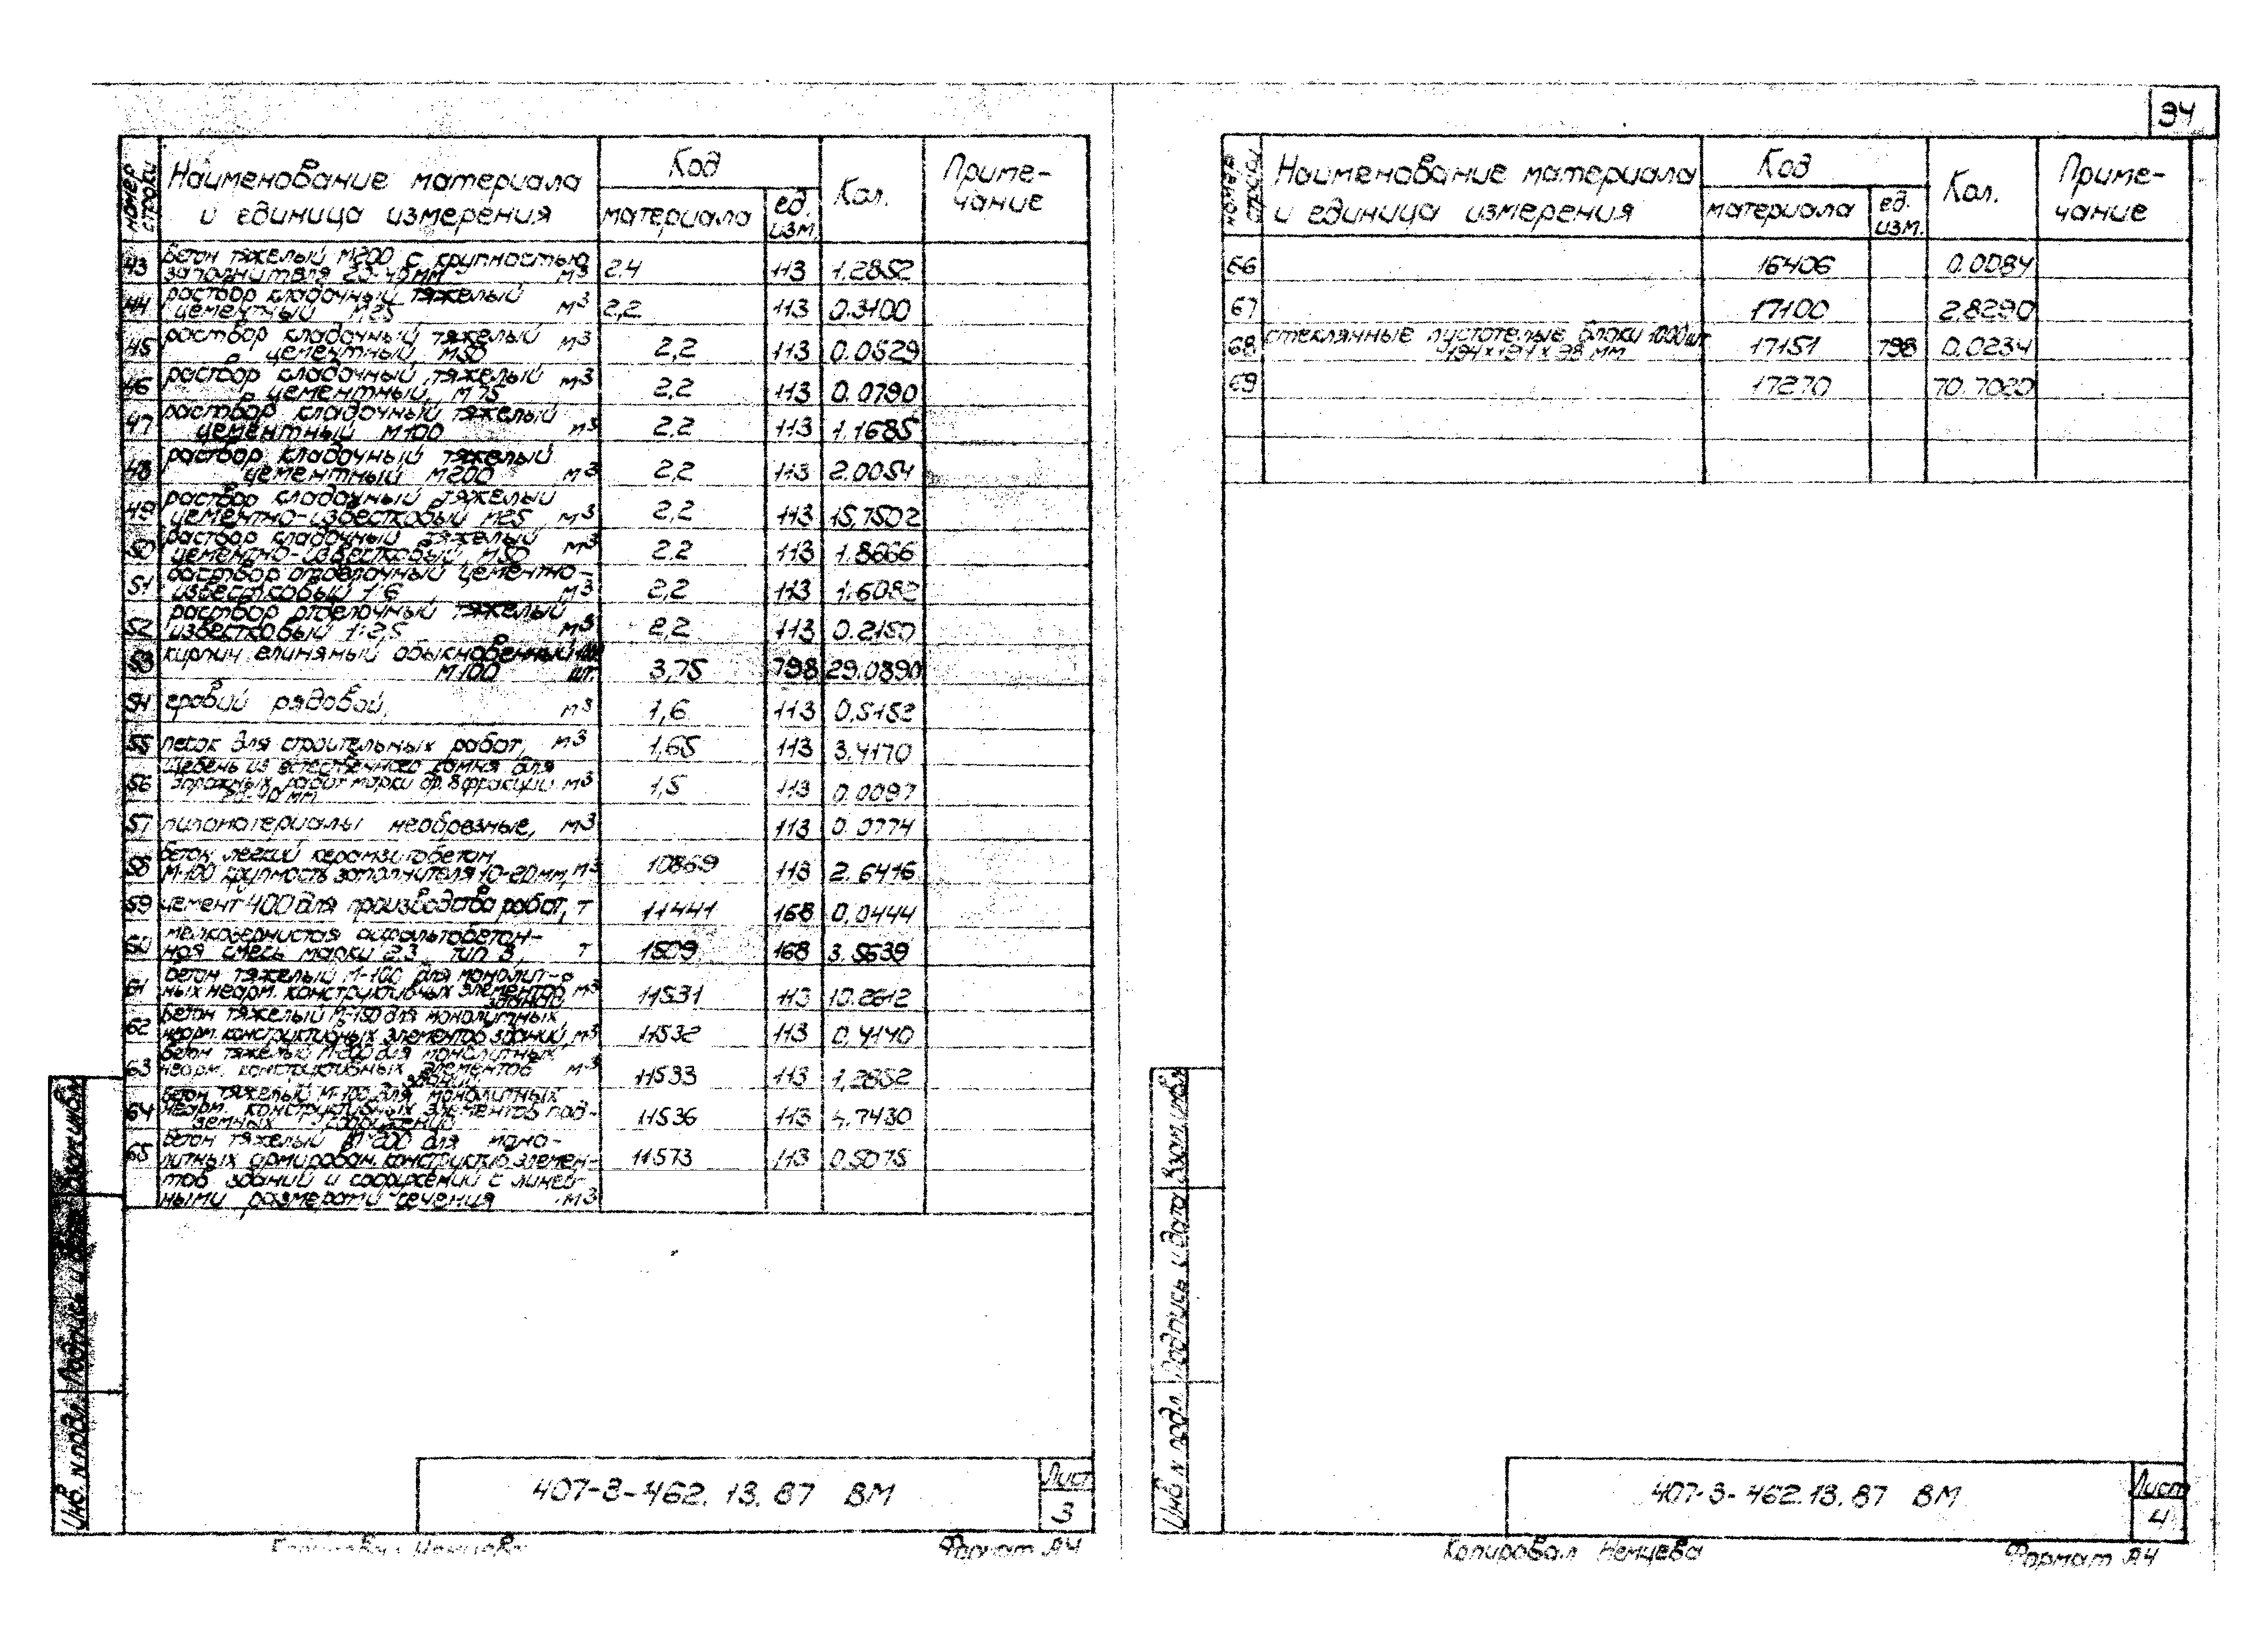 94
номер строки
Наименование материала
и единица измерения
Код
материала
ед.
изм.
Кол.
Приме-
чание
43 бетон тяжелый М200 с крупностью
заполнителя 20-40 мм м3 2.4 113 1.2852
44 раствор кладочный тяжелый
цементный М25 м3 2,2 113 0.3100
45 раствор кладочный тяжелый
цементный М50 м3 2,2 113 0.0529
46 раствор кладочный тяжелый
цементный, М75 м3 2,2 113 0.0790
47 раствор кладочный тяжелый
цементный М100 м3 2.2 113 1.1685
48 раствор кладочный тяжелый
цементный М200 м3 2,2 113 2.0054
49 раствор кладочный тяжелый
цементно-известковый М25 м3 2,2 113 15.7502
50 раствор кладочный тяжелый
цементно-известковый, М50 м3 2.2 113 1.8666
51 раствор отделочный цементно-
известковый 1:6 м3 2,2 113 1.6082
52 раствор отделочный тяжелый
известковый 1:2,5 м3 2,2 113 0.2150
53 кирпич глиняный обыкновенный 1000
М100 шт. 3,75 798 29.0890
54 гравий рядовой, м3 1,6 113 0.5152
55 песок для строительных работ, м3 1,65 113 3.4170
56 щебень из естественного камня для
работ марки др. 8 фракции м3 1,5 113 0.0097
20-40 мм
57 пиломатериалы необрезные, м3 113 0.0774
58 бетон легкий керамзитобетон
М-100 крупность заполнителя 10-20 мм, м3 10869 113 2.6416
59 цемент 400 для производства работ, т 11441 168 0.0444
60 мелкозернистая асфальтобетон-
ная смесь марки 2.3 тип В, т 1509 168 3.5639
61 бетон тяжелый М-100 для монолит-
ных неарм. конструктивных элементов м3 11531 113 10.2612
зданий
62 бетон тяжелый М-150 для монолитных
неарм. конструктивных элементов зданий, м3 11532 113 0.4140
63 бетон тяжелый М-200 для монолитных
неарм. конструктивных элементов м3 11533 113 1,2852
зданий
64 бетон тяжелый М-100 для монолитных
неарм. конструктивных элементов под-
земных сооружений 11536 113 4.7430
65 бетон тяжелый М-200 для моно-
литных армирован. конструктив. элемен- 11573 113 0.5075
тов зданий и сооружений с линей-
ными размерами сечения м3
Инв. N подл. Подпись и дата Взам. инв. N
407-3-462.13.87 ВМ
Лист
3
Копировал Немцева
Формат А4
номер строки
Наименование материала
и единица измерения
Код
материала
ед.
изм.
Кол.
Приме-
чание
66 16406 0.0084
67 17100 2.8290
68 стеклянные пустотелые блоки 1000 шт
194х194х98 мм 17151 798 0.0234
69 17270 70.7020
Инв. N подл. Подпись и дата Взам. инв. N
407-3-462.13.87 ВМ
Лист
4
Копировал Немцева
Формат А4